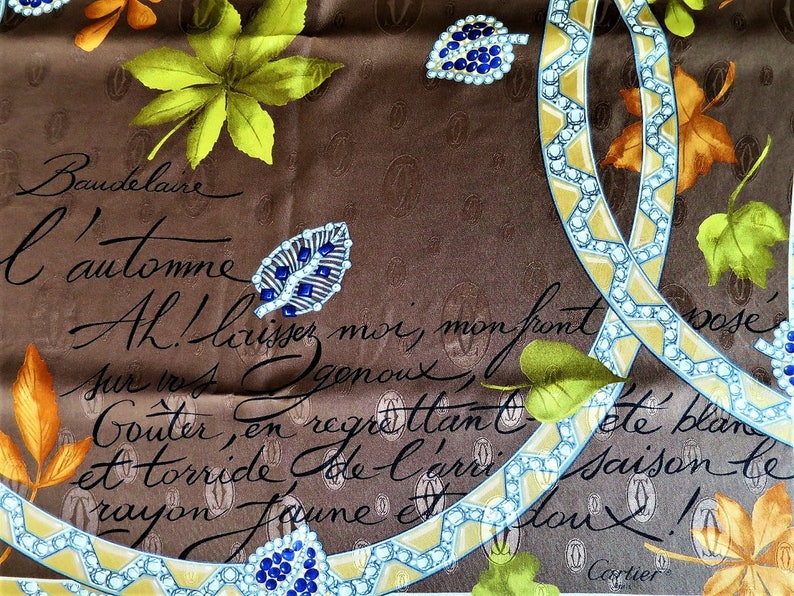 Baudelaire
l'automne
Ah! laissez moi, mon front posé
sur vos genoux,
Goûter, en regrettant l'été blanc
et torride de l'arrière saison le
rayon jaune et doux!
Cartier